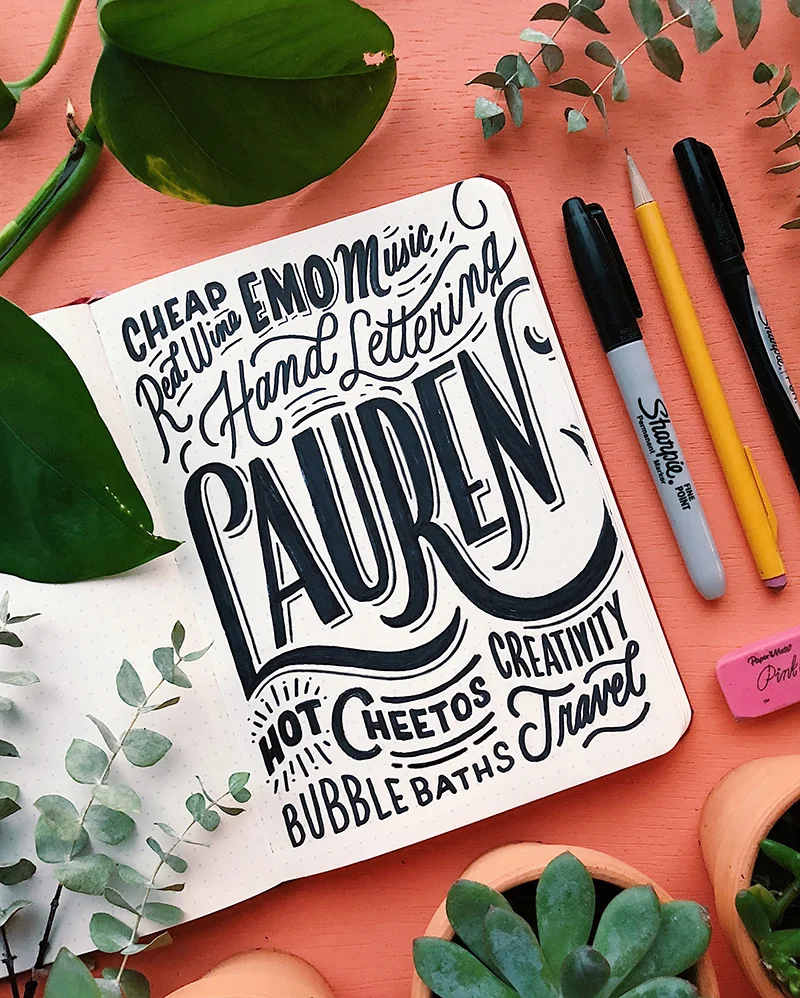 CHEAP EMO Music
Red Wine
Hand Lettering
LAUREN
CREATIVITY
HOT CHEETOS Travel
BUBBLE BATHS
Sharpie.
Permanent Marker
FINE
POINT
Sharpie
PEN
Paper Mate
Pink